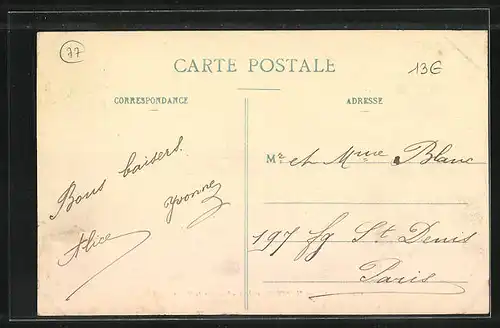 77
CARTE POSTALE
13€
CORRESPONDANCE
ADRESSE
Bons baisers.
Yvonne
Alice
Mr et Mme Blanc
197 fg St Denis
Paris